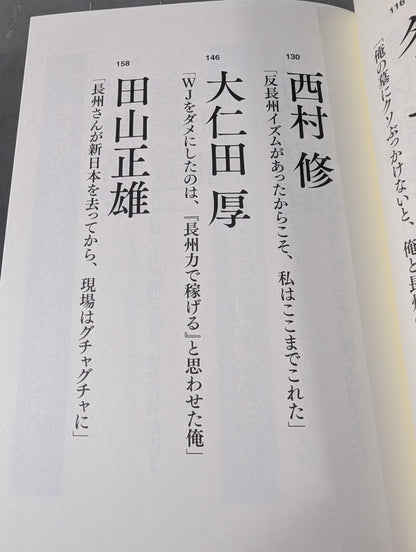 116
「俺の墓にクソぶっかけないと、俺と長州
130
西村 修
「反長州イズムがあったからこそ、私はここまでこれた」
146
大仁田 厚
「WJをダメにしたのは、『長州力で稼げる』と思わせた俺」
158
田山正雄
「長州さんが新日本を去ってから、現場はグチャグチャに」